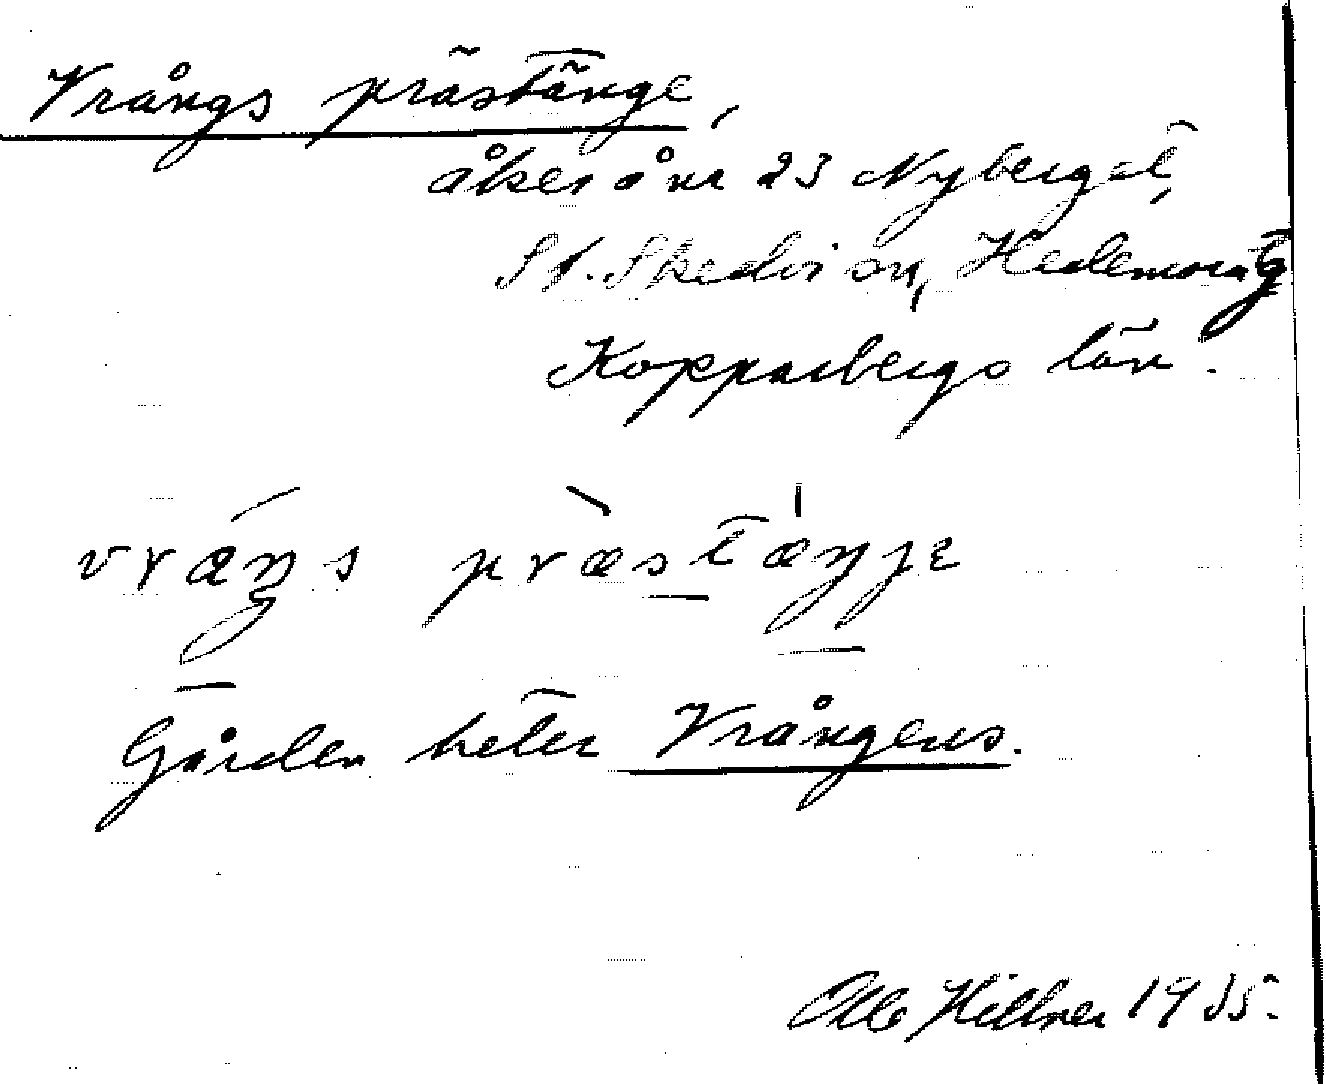 Vrångs prästänge,
åker å nr 23 Nyberget,
St. Skedvi sn, Hedemora tg
Kopparbergs län.
vræŋs præstæŋje
Gården heter Vrångens.
Olle Hillner 1935.